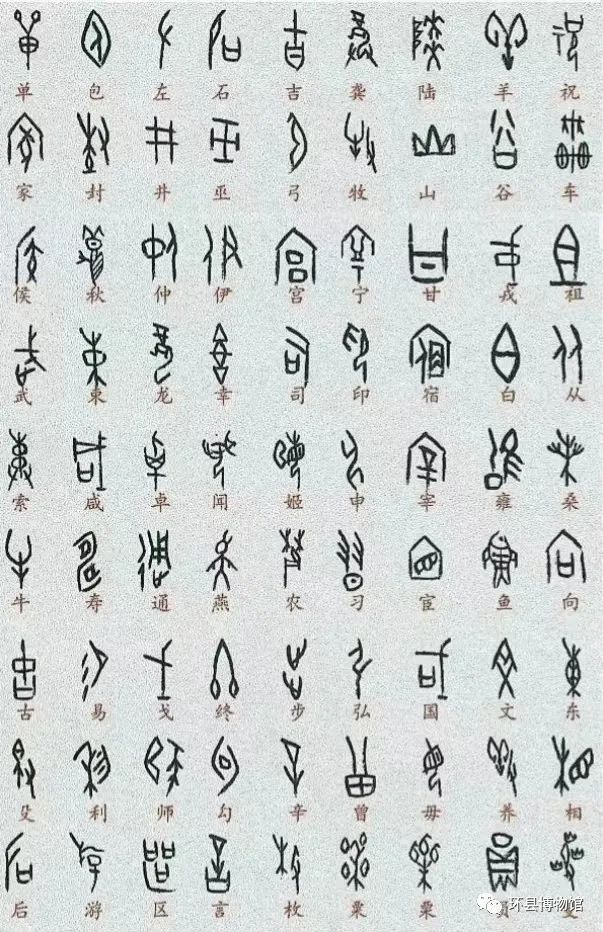 单 包 左 石 吉 龚 陆 羊 祝
家 封 井 巫 弓 牧 山 谷 车
侯 秋 仲 伊 宫 宁 甘 戎 祖
武 束 龙 幸 司 印 宿 白 从
索 咸 卓 闻 姬 申 宰 雍 桑
牛 寿 通 燕 农 习 宦 鱼 向
古 易 戈 终 步 弘 国 文 东
殳 利 师 勾 辛 曾 毋 养 相
后 游 区 言 枚 粟 栗
环县博物馆